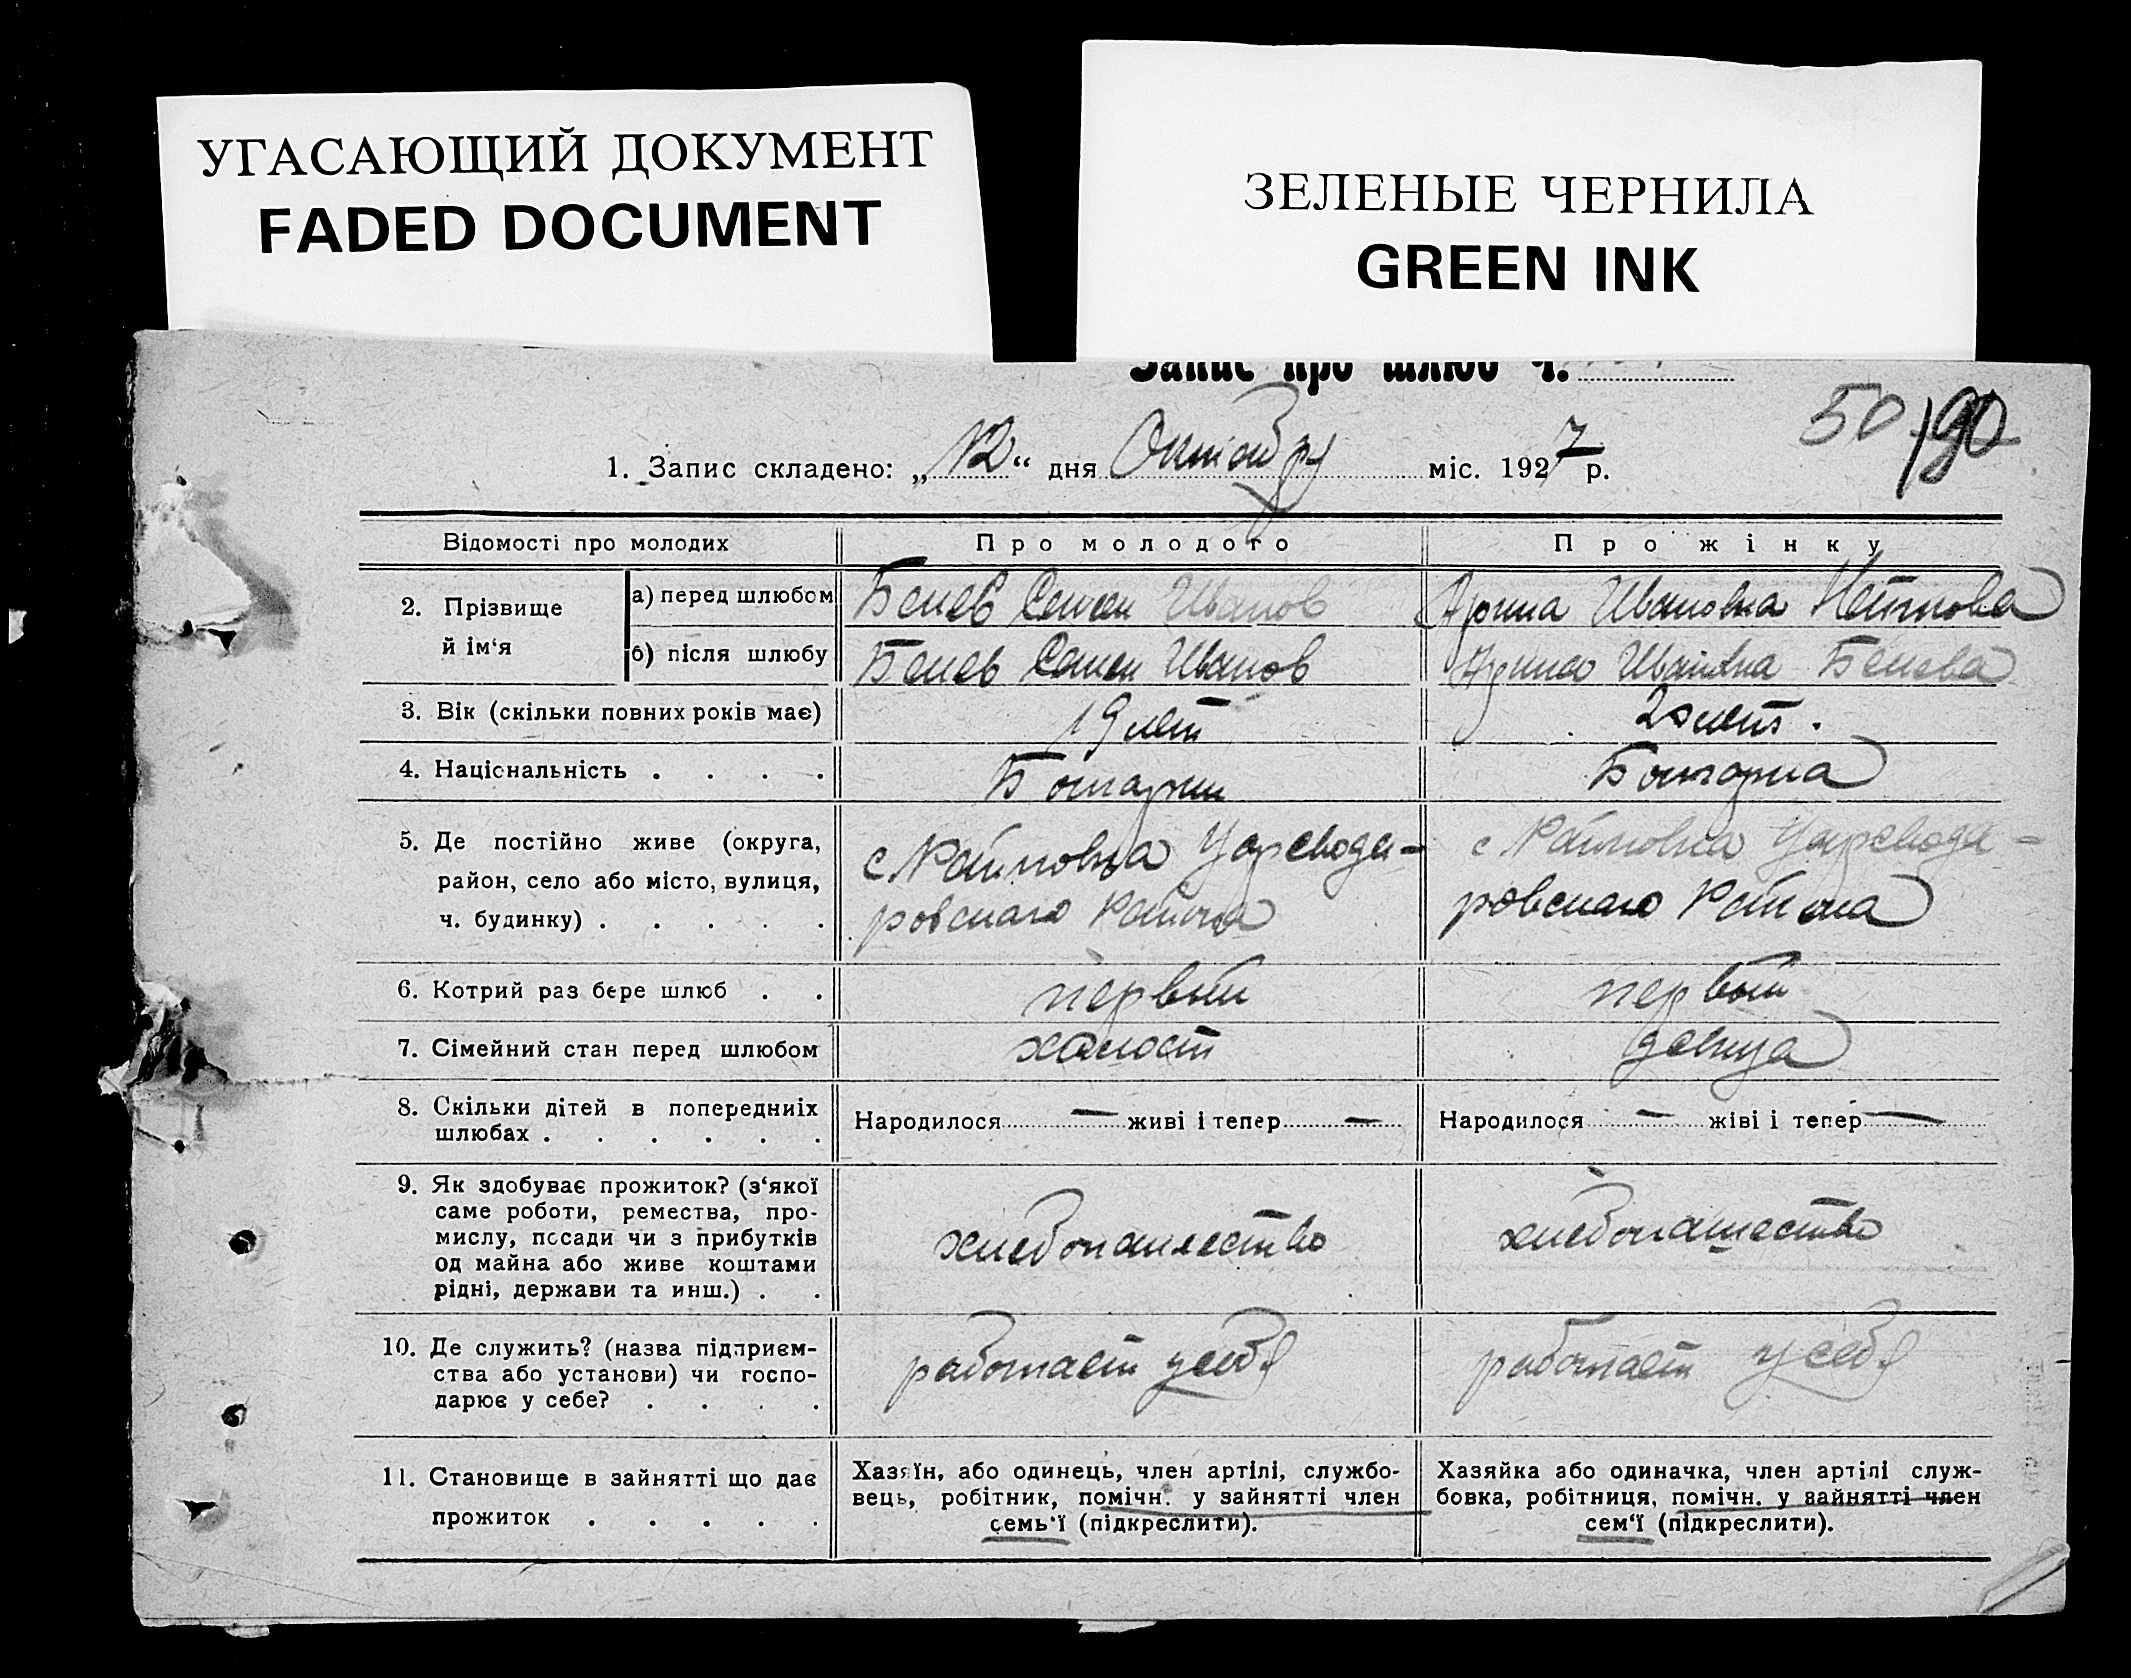 УГАСАЮЩИЙ ДОКУМЕНТ
FADED DOCUMENT
ЗЕЛЕНЫЕ ЧЕРНИЛА
GREEN INK
Запис про шлюб ч.
50 90
1. Запис складено: „12“ дня Октобру міс. 1927 р.
Відомості про молодих
Про молодого
Про жінку
2. Прізвище й ім‘я
а) перед шлюбом
Бенев Семен Иванов
Арина Ивановна
б) після шлюбу
Бенев Семен Иванов
Арина Ивановна Бенева
3. Вік (скільки повних років має)
19 лет
20 лет.
4. Національність . . . .
Болгарин
Болгарка
5. Де постійно живе (округа,
район, село або місто, вулиця,
ч. будинку) . . . . .
с Райновка Царевода-
ровскаго Района
с Райновка Царевода-
ровскаго Района
6. Котрий раз бере шлюб . .
первый
первый
7. Сімейний стан перед шлюбом
холост
девица
8. Скільки дітей в попередниіх
шлюбах . . . . . .
Народилося — живі і тепер —
Народилося — жіві і тепер —
9. Як здобуває прожиток? (з‘якої
саме роботи, ремества, про-
мислу, посади чи з прибутків
од майна або живе коштами
рідні, держави та инш.) . .
хлебопашество
хлебопашество
10. Де служить? (назва підприєм-
ства або установи) чи госпо-
дарює у себе? . . . .
работает у себя
работает у себя
11. Становище в зайнятті що дає
прожиток . . . . .
Хазяїн, або одинець, член артілі, службо-
вець, робітник, помічн. у зайнятті член
семь‘ї (підкреслити).
Хазяйка або одиначка, член артілі служ-
бовка, робітниця, помічн. у зайнятті член
сем‘ї (підкреслити).